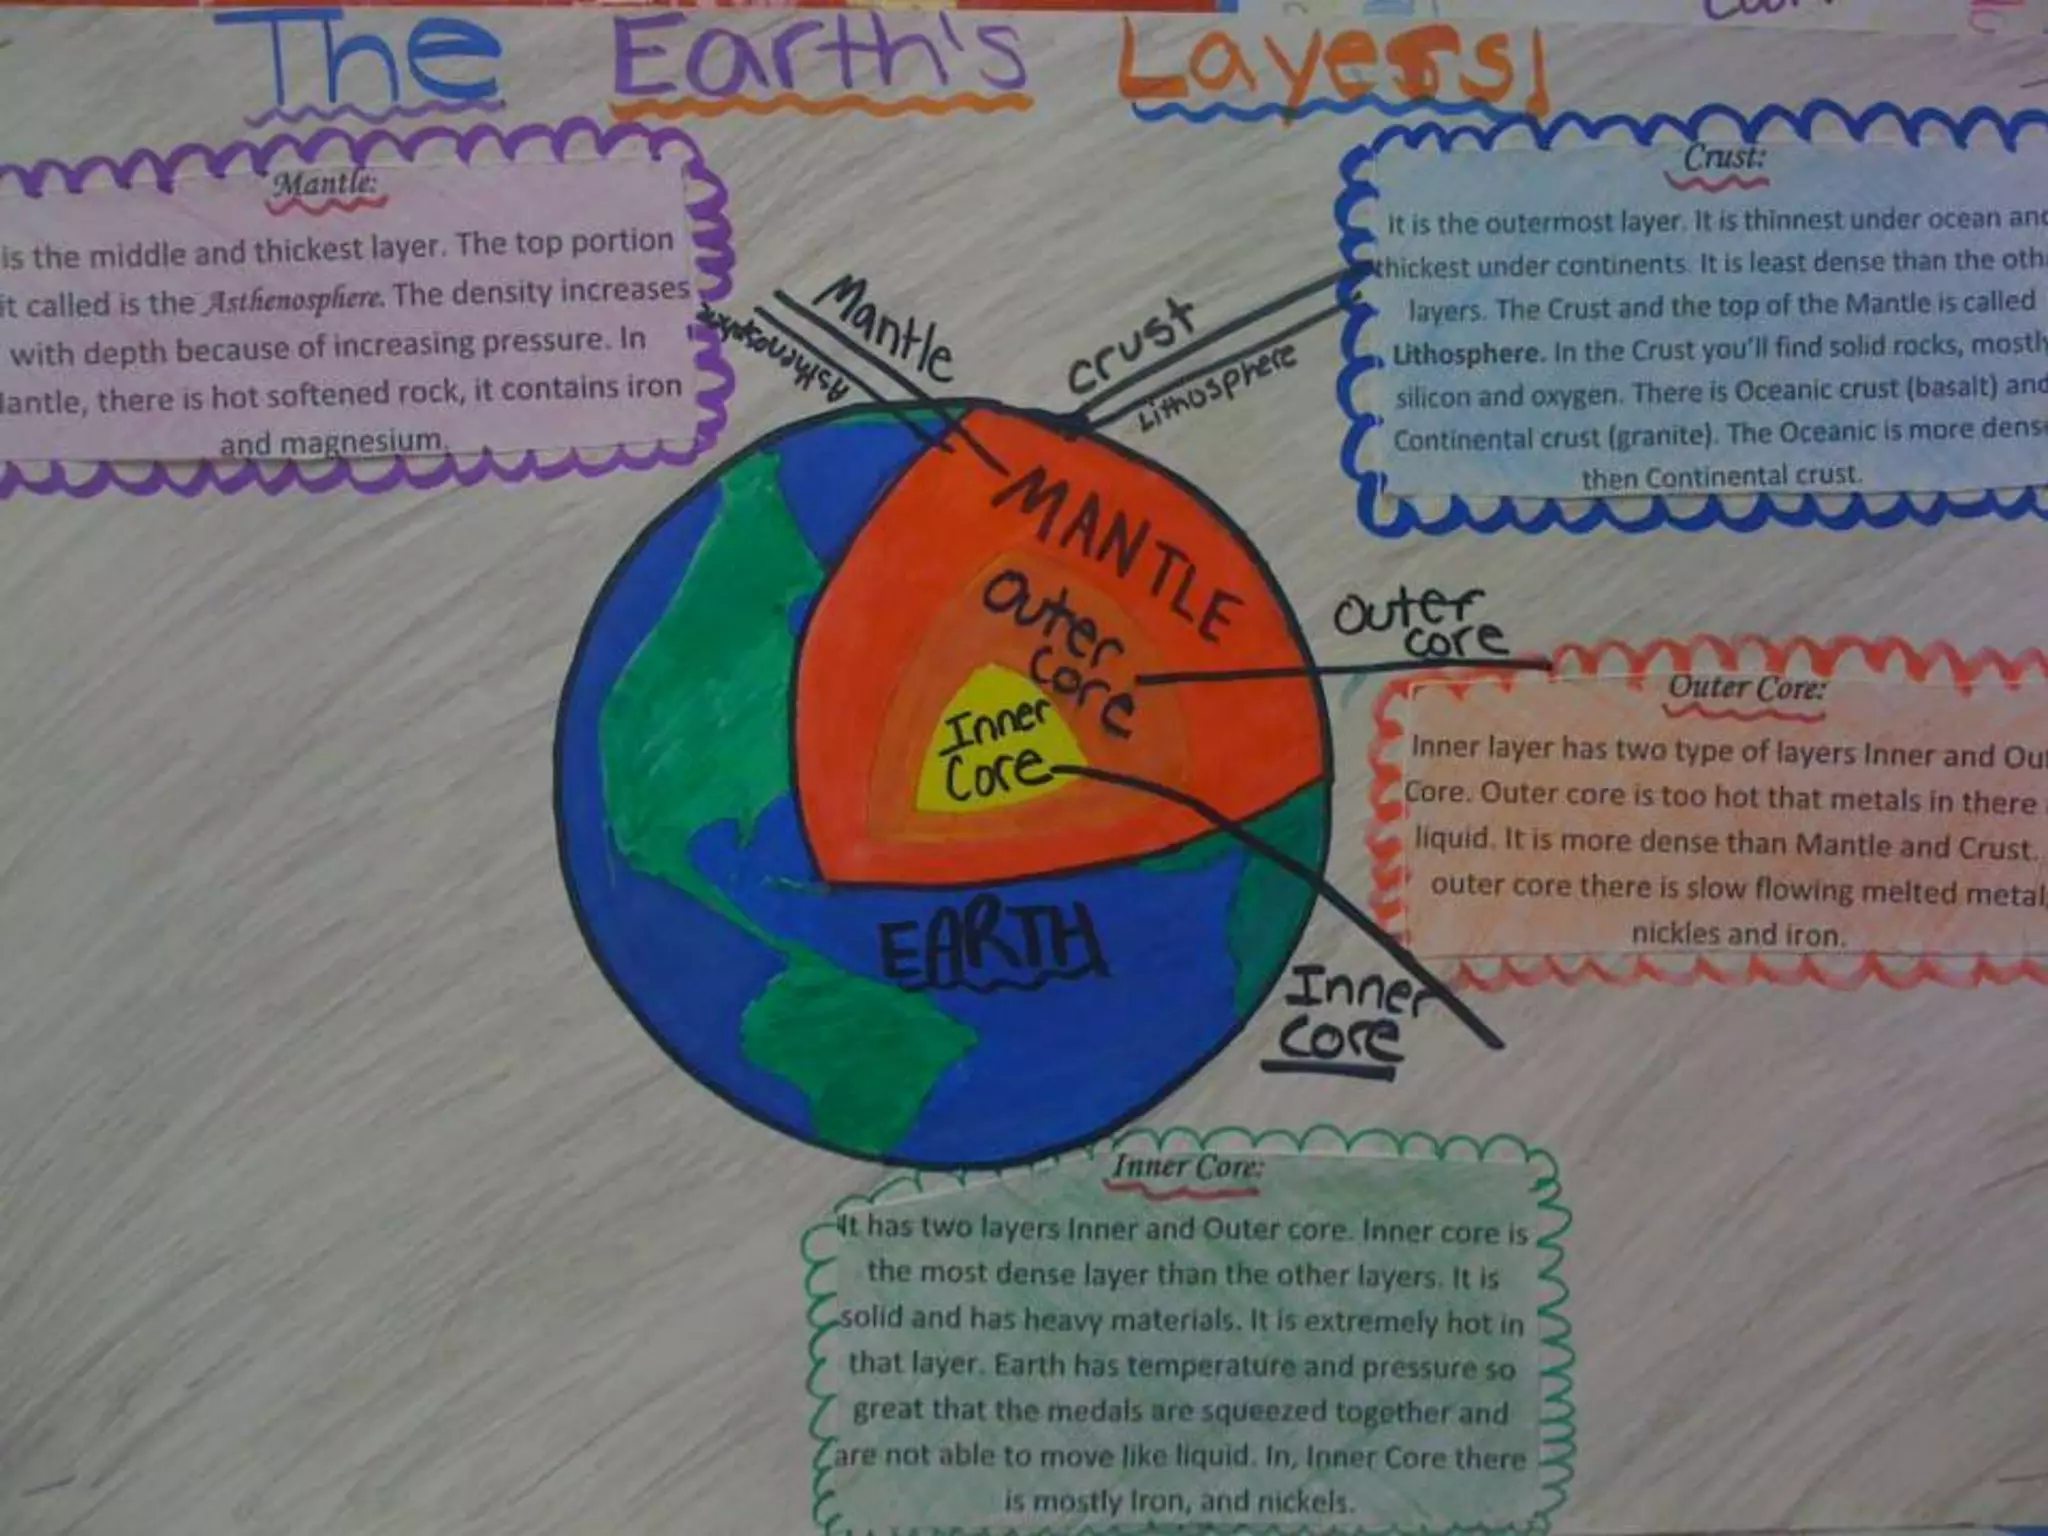 The Earth's Layers!
Mantle:
is the middle and thickest layer. The top portion
it called is the Asthenosphere. The density increases
with depth because of increasing pressure. In
antle, there is hot softened rock, it contains iron
and magnesium.
Crust:
It is the outermost layer. It is thinnest under ocean and
thickest under continents. It is least dense than the oth
layers. The Crust and the top of the Mantle is called
Lithosphere. In the Crust you'll find solid rocks, mostly
silicon and oxygen. There is Oceanic crust (basalt) and
Continental crust (granite). The Oceanic is more dens
then Continental crust.
Mantle
Asthenosphere
Crust
Lithosphere
MANTLE
Outer
Core
Inner
Core
EARTH
Outer
Core
Inner
Core
Outer Core:
Inner layer has two type of layers Inner and Out
Core. Outer core is too hot that metals in there
liquid. It is more dense than Mantle and Crust.
outer core there is slow flowing melted metal,
nickles and iron.
Inner Core:
It has two layers Inner and Outer core. Inner core is
the most dense layer than the other layers. It is
solid and has heavy materials. It is extremely hot in
that layer. Earth has temperature and pressure so
great that the medals are squeezed together and
are not able to move like liquid. In, Inner Core there
is mostly Iron, and nickels.